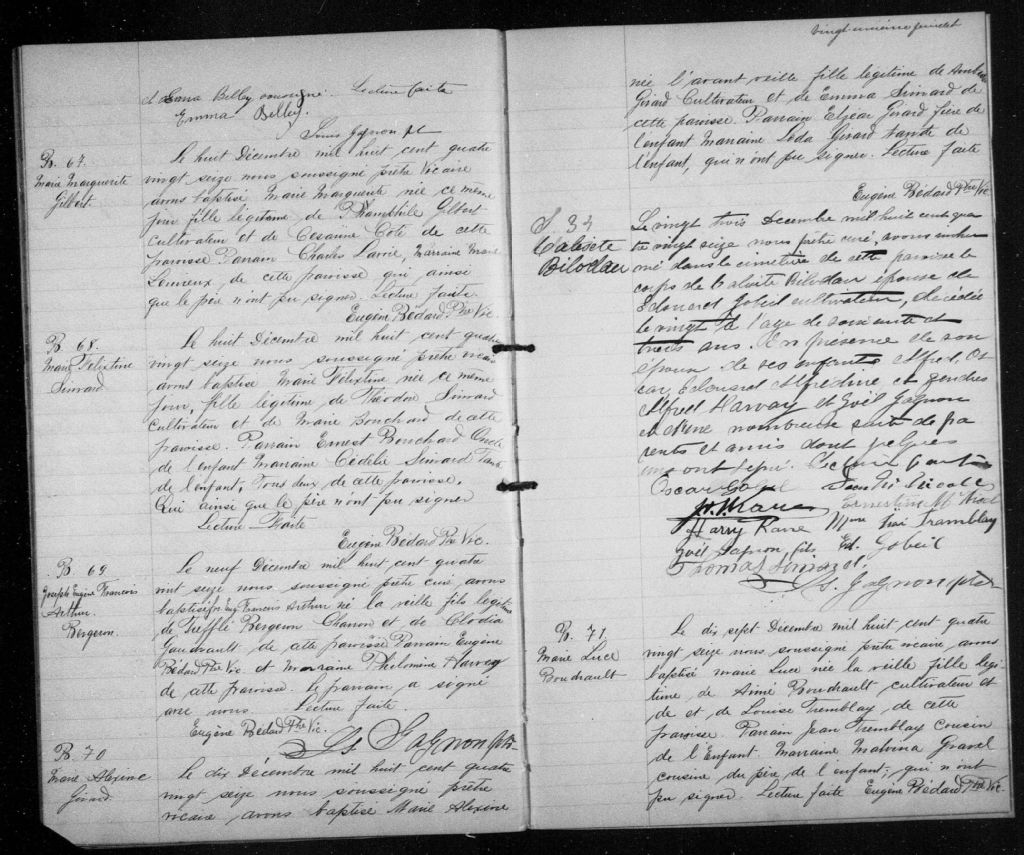 et Emma Belley soussigné. Lecture faite
Emma Belley
Louis Gagnon ptre
B. 67.
Marie Marguerite
Gilbert.
Le huit Décembre mil huit cent quatre
vingt seize nous soussigné prêtre Vicaire
avons baptisé Marie Marguerite née ce même
jour fille légitime de Gilbert
cultivateur et de Césarine Coté de cette
paroisse Parrain Charles Marraine Marie
Lemieux de cette paroisse qui ainsi
que le père n'ont pu signer. Lecture faite
Eugène Bédard Ptre Vic
B 68.
Marie Félixtine
Simard.
Le huit Décembre mil huit cent quatre
vingt seize nous soussigné prêtre vicaire
avons baptisé Marie Félixtine née ce même
jour, fille légitime de Théodore Simard
cultivateur et de Marie Bouchard de cette
paroisse. Parrain Ernest Bouchard Oncle
de l'enfant Marraine Cédélie Simard Tante
de l'enfant, Tous deux de cette paroisse.
Qui ainsi que le père n'ont pu signer
Lecture Faite
Eugène Bédard Ptre Vic.
B 69
Joseph Eugène François
Arthur
Bergeron.
Le neuf Décembre mil huit cent quatre
vint seize nous soussigné prêtre curé avons
baptisé Jos Eug François Arthur né la veille fils légitime
de Trefflé Bergeron et de Clodia
Gaudrault de cette paroisse Parrain Eugène
Bédard Ptre Vic et Marraine Philomine Harvey
de cette paroisse. Le parrain a signé
avec nous. Lecture faite.
Eugène Bédard Ptre Vic.
Ls Gagnon ptre
B. 70
Marie Alexine
Girard.
Le dix Décembre mil huit cent quatre
vingt seize nous soussigné prêtre
vicaire avons baptisé Marie Alexine
vingt-unième feuillet
née l'avant veille fille légitime de
Girard Cultivateur et de Emma Simard de
cette paroisse Parrain Elzéar Girard frère de
l'enfant Marraine Léda Girard tante de
l'enfant, qui n'ont pu signer. Lecture faite
Eugène Bédard Ptre Vic
S. 34
Calixte
Bilodau
Le vingt trois Décembre mil huit cents qua
tre vingt seize nous prêtre curé, avons inhu
mé dans le cimetière de cette paroisse le
corps de Calixte Bilodau épouse de
Edouard Gobeil cultivateur, décédée
le vingt de l'age de soixante et
trois ans. En présence de son
époux de ses enfants Alfred, Os
car, Edouard Alfrédine et gendres
Alfred Harvay et Joël Gagnon
et d'une nombreuse suite de pa
rents et amis dont quelques
uns ont signé. Lecture faite
Oscar Gobeil
Harry Kane Mme Tremblay
Joël Gagnon, fils Ed. Gobeil
Thomas Simard.
Ls. Gagnon ptre
B. 71
Marie Luce
Boudrault
Le dix sept Décembre mil huit cent quatre
vingt seize nous soussigné prêtre vicaire, avons
baptisé marie Luce née la veille fille légi
time de Aimé Boudrault cultivateur et
de et de Louise Tremblay de cette
paroisse. Parrain Jean Tremblay cousin
de l'Enfant. Marraine Malvina Gravel
cousine du père de l'enfant, qui n'ont
pu signer. Lecture faite Eugène Bédard Ptre Vic.